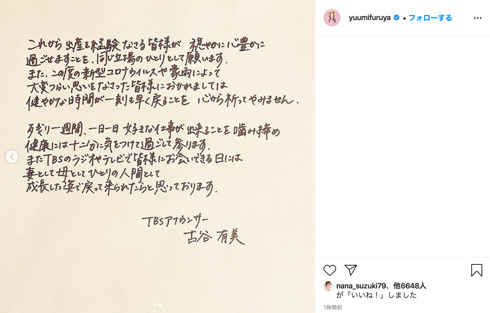 これから出産を経験なさる皆様が 穏やかに心豊かに
過ごせますことを、同じ立場のひとりとして願います。
また、この度の新型コロナウイルスや豪雨によって
大変つらい思いをなさった皆様におかれましては
健やかな時間が一刻も早く戻ることを 心から祈ってやみません。
残り一週間、一日一日 好きな仕事が出来ることを噛み締め
健康には十二分に気をつけて過ごして参ります。
またTBSのラジオやテレビで皆様にお会いできる日には
妻として母としてひとりの人間として
成長した姿で戻って来られたらと思っております。
TBSアナウンサー
古谷 有美
yuumifuruya • フォローする
nana_suzuki79、他6648人
が「いいね！」しました
1時間前